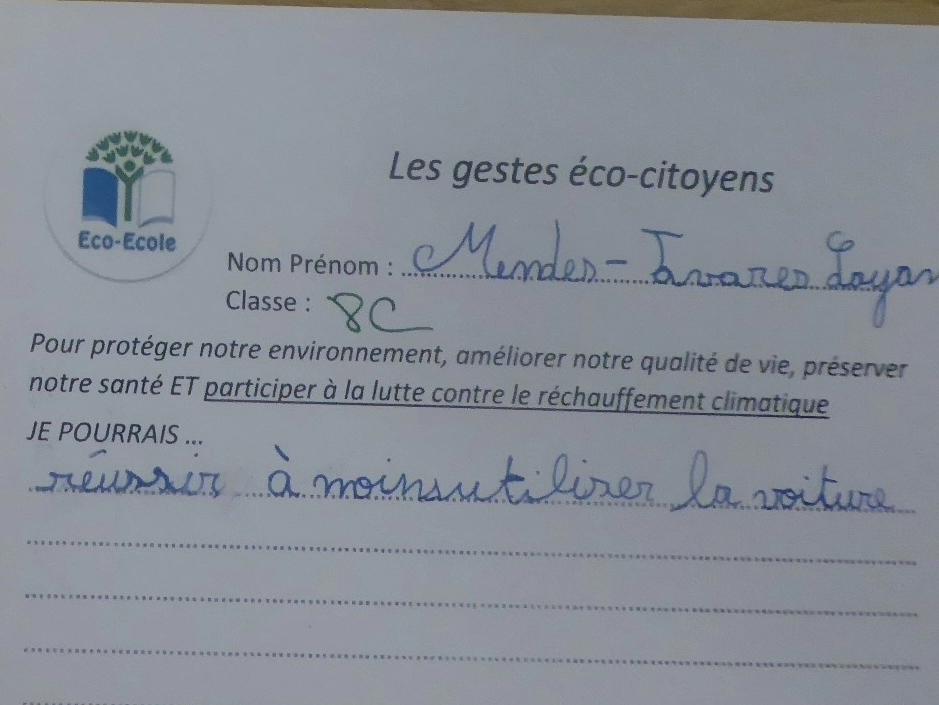 Les gestes éco-citoyens
Eco-Ecole
Nom Prénom : Mendes-Tavares Loyan
Classe : 8C
Pour protéger notre environnement, améliorer notre qualité de vie, préserver
notre santé ET participer à la lutte contre le réchauffement climatique
JE POURRAIS ...
réussir à moins utiliser la voiture